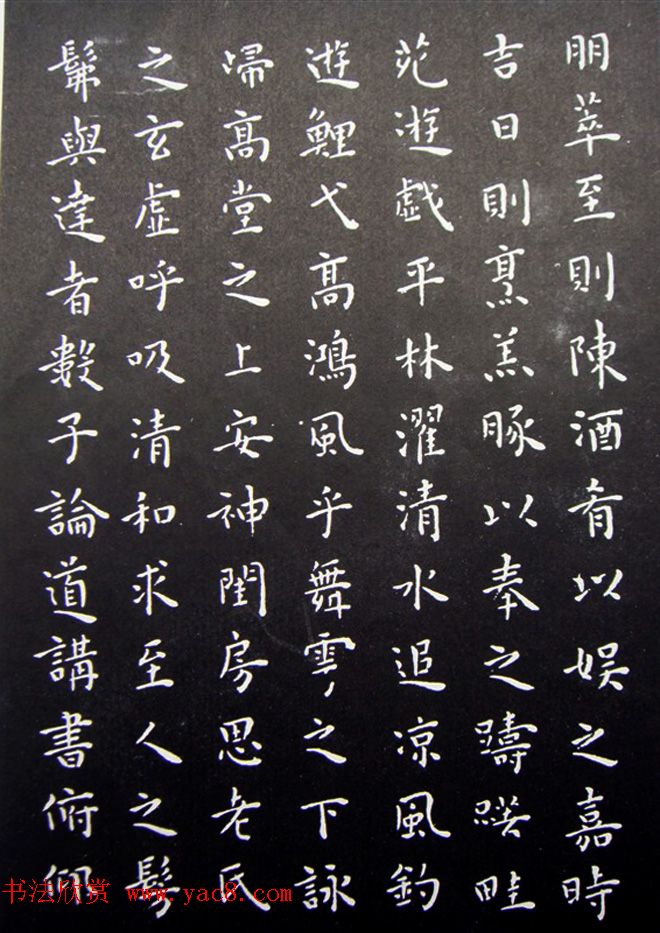 朋萃至則陳酒肴以娛之嘉時
吉日則烹羔豚以奉之躊躇畦
苑遊戯平林濯清水追凉風釣
遊鯉弋髙鴻風乎舞雩之下詠
歸髙堂之上安神閨房思老氏
之玄虛呼吸清和求至人之髣
髴與達者數子論道講書俯仰
书法欣赏 www.yac8.com